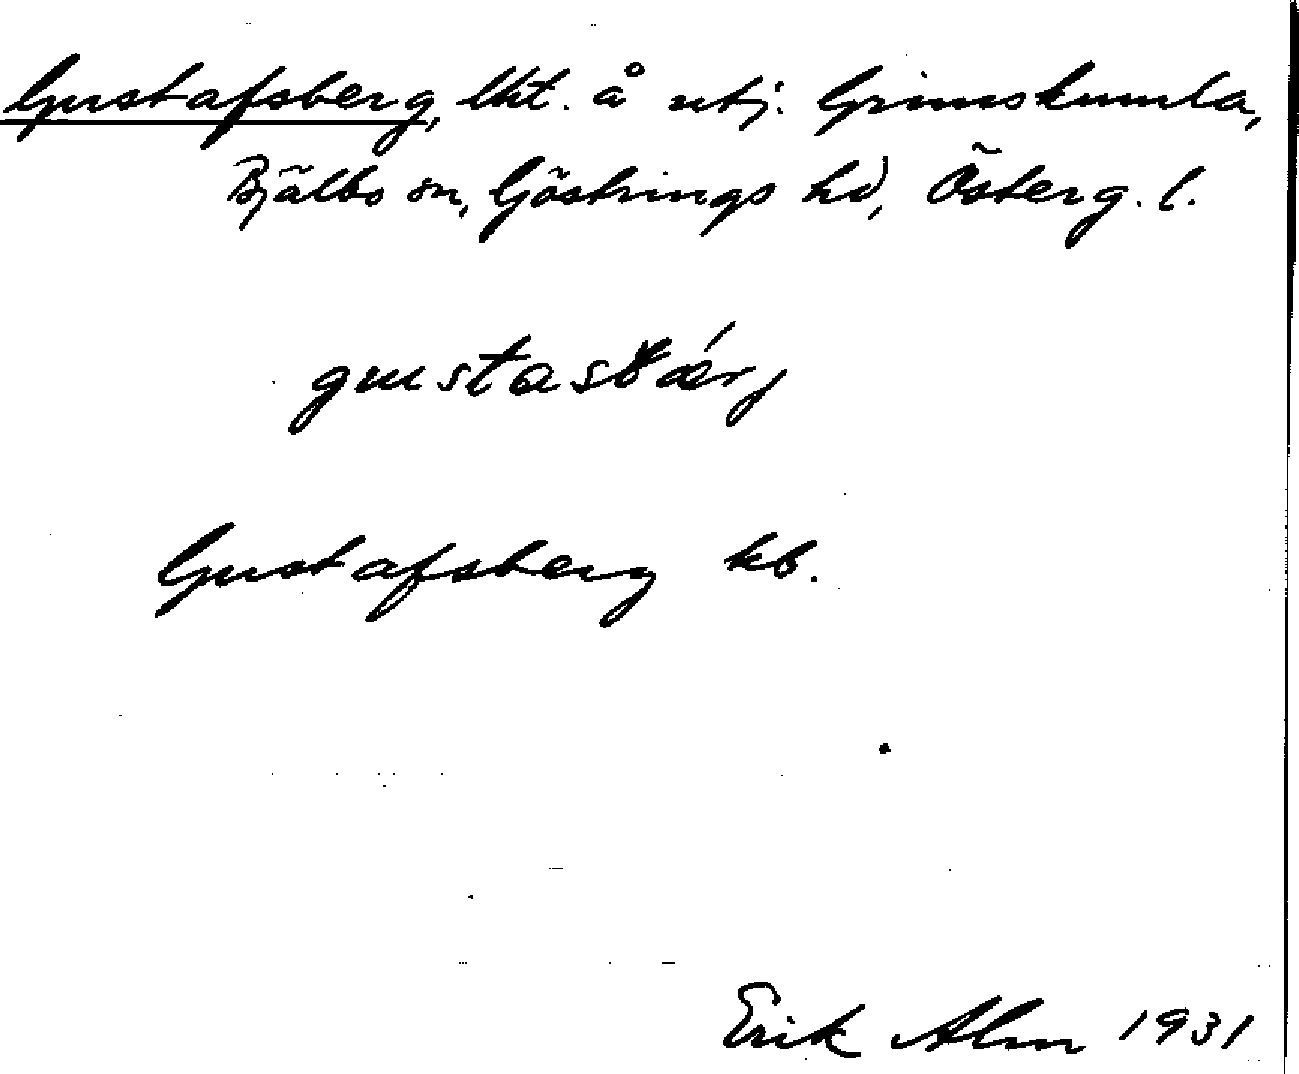 Gustafsberg, lht. å utj. Grimskumla,
Bjälbo sn, Göstrings hd, Österg. l.
gustasbærj
Gustafsberg kb.
Erik Alm 1931